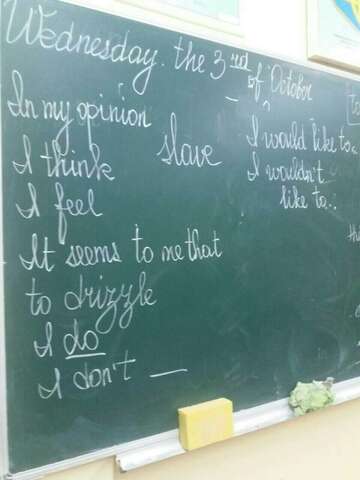 Wednesday. the 3rd
of October
In my opinion
I think
I feel
It seems to me that
to drizzle
I do
I don't
slave
I would like to
I wouldn't
like to...